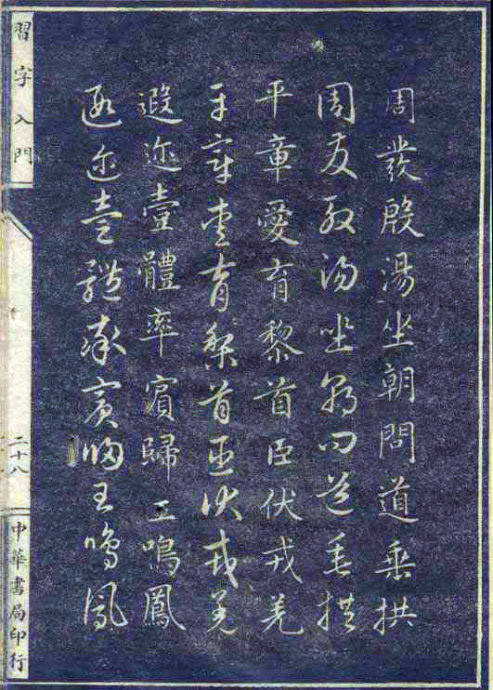 周發殷湯坐朝問道垂拱
周發殷湯坐朝問道垂拱
平章愛育黎首臣伏戎羌
平章愛育黎首臣伏戎羌
遐迩壹體率賓歸王鳴鳳
遐迩壹體率賓歸王鳴鳳
習字入門
二十八
中華書局印行